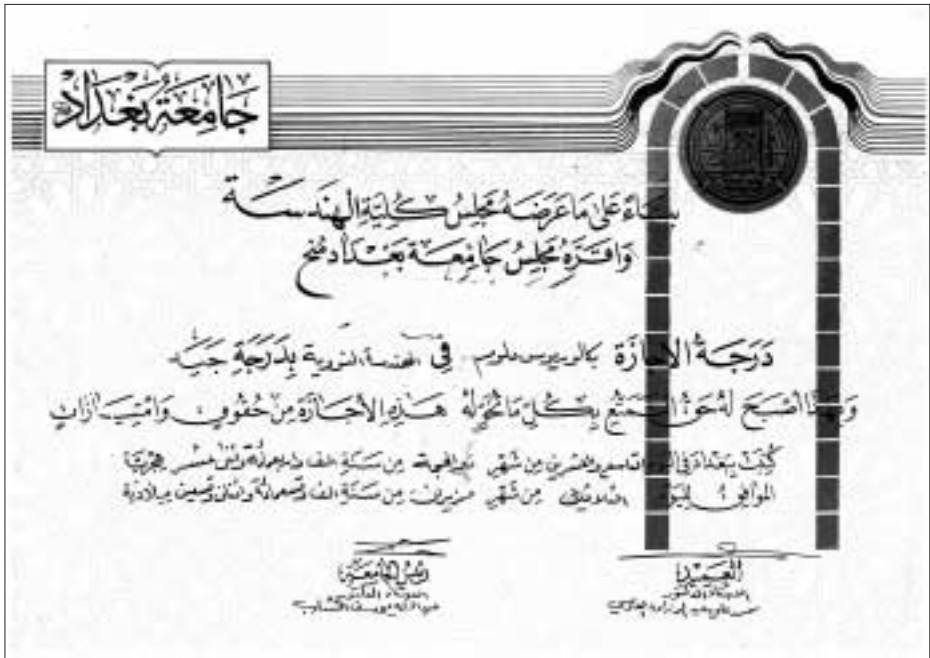 جَامِعَةُ بَغْدَاد
بناءً على ما عرضه مجلس كلية الهندسة
وأقره مجلس جامعة بغداد منح
درجة الاجازة بكالوريوس علوم في الهندسة النووية بدرجة جيد
وبهذا اصبح له حق التمتع بكل ما تخوله هذه الاجازة من حقوق وامتيازات
كتب ببغداد في اليوم التاسع والعشرين من شهر ذي الحجة من سنة الف واربعمائة واثنتي عشر هجرية
الموافق لليوم الثلاثين من شهر حزيران من سنة الف وتسعمائة واثنان وتسعين ميلادية
العميد
الاستاذ الدكتور
رئيس الجامعة
الاستاذ الدكتور